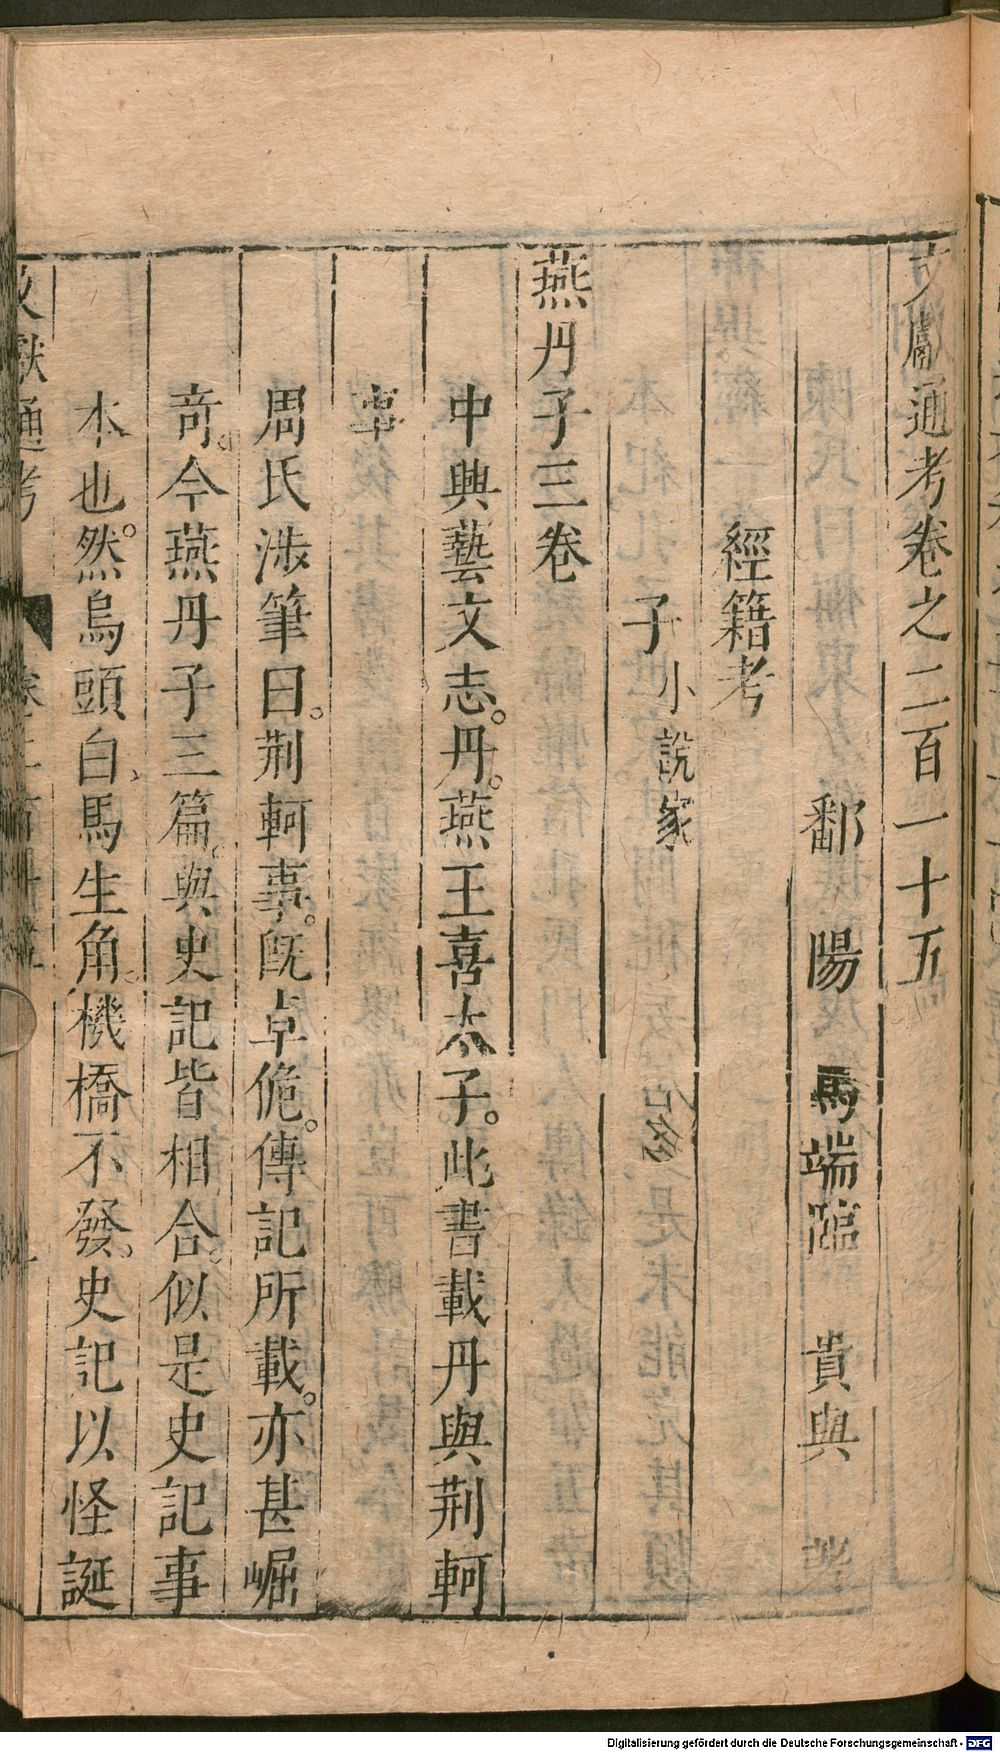 文獻通考卷之二百一十五
鄱陽馬端臨貴與著
經籍考
子小說家
燕丹子三卷
中興藝文志。丹。燕王喜太子。此書載丹與荊軻
事
周氏涉筆曰。荊軻事。旣卓佹。傳記所載。亦甚崛
奇。今燕丹子三篇。與史記皆相合。似是史記事
本也。然烏頭白、馬生角。機橋不發。史記以怪誕
文獻通考
Digitalisierung gefördert durch die Deutsche Forschungsgemeinschaft - DFG